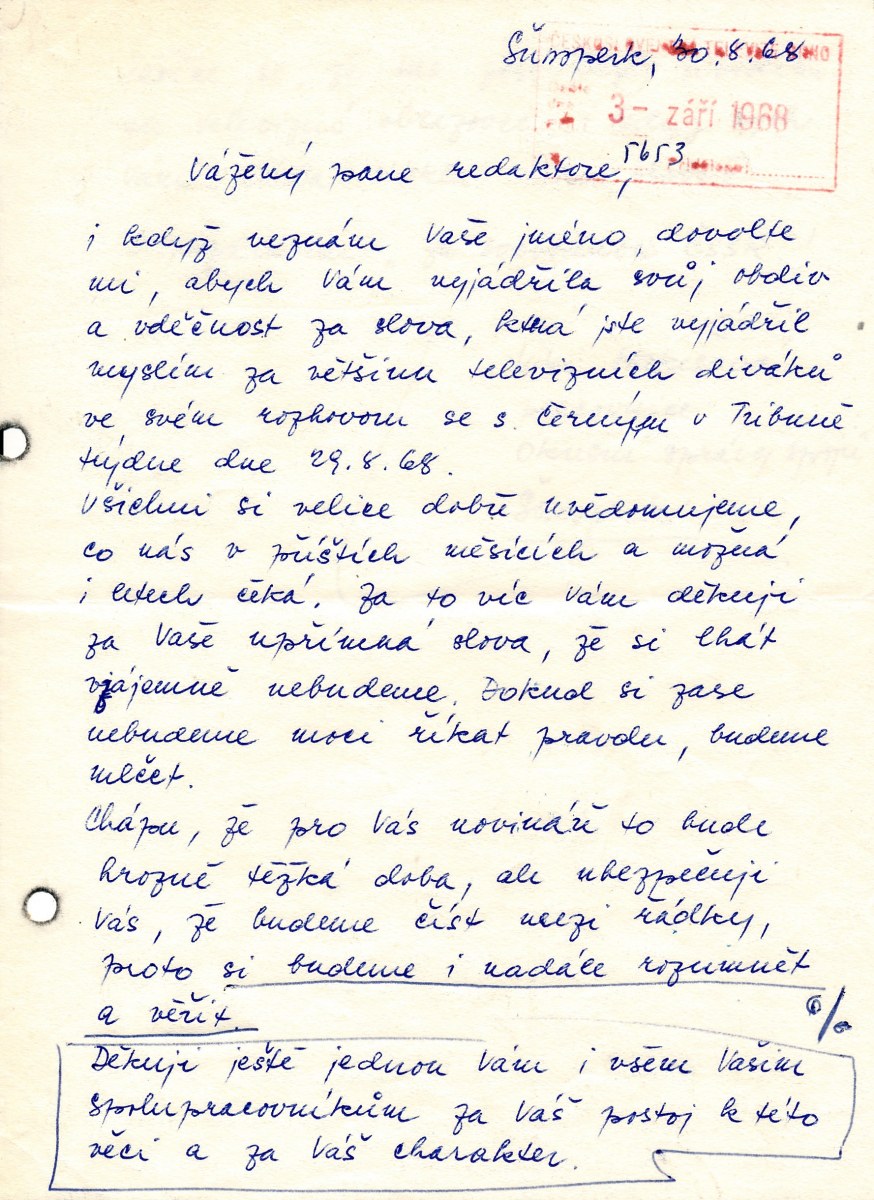 Šumperk, 30.8.68
ČESKOSLOVENSKÁ TELEVIZE BRNO
Došlo
dne
3 - září 1968
5653
Vážený pane redaktore,
i když neznám Vaše jméno, dovolte
mi, abych Vám vyjádřila svůj obdiv
a vděčnost za slova, která jste vyjádřil
myslím za většinu televizních diváků
ve svém rozhovoru se s. Černým v Tribuně
týdne dne 29.8.68.
Všichni si velice dobře uvědomujeme,
co nás v příštích měsících a možná
i letech čeká. Za to víc Vám děkuji
za Vaše upřímná slova, že si lhát
vzájemně nebudeme. Dokud si zase
nebudeme moci říkat pravdu, budeme
mlčet.
Chápu, že pro Vás novináře to bude
hrozně těžká doba, ale ubezpečuji
Vás, že budeme číst mezi řádky,
proto si budeme i nadále rozumnět
a věřit.
Děkuji ještě jednou Vám i všem Vašim
spolupracovníkům za Váš postoj k této
věci a za Váš charakter.